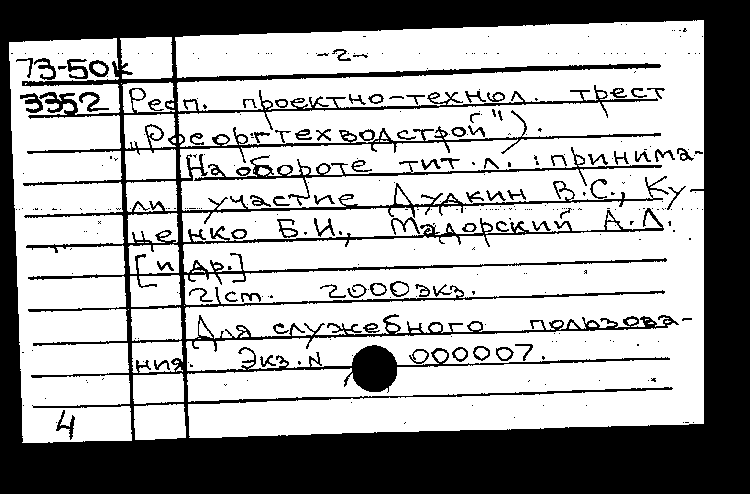 73-50к
-2-
3352 Респ. проектно-технол. трест
„Росоргтехводстрой").
На обороте тит.л.: принима-
ли участие Дудкин В.С., Ку-
ценко Б.И., Мадорский А.Л.
[и др.]
21см. 2000экз.
Для служебного пользова-
ния. Экз.N 000007.
4